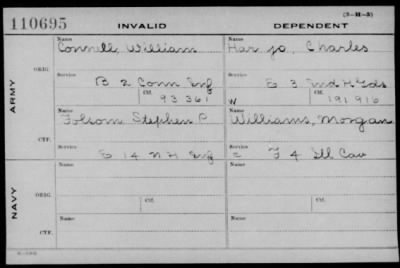 (3-H-3)
110695 INVALID DEPENDENT
ARMY
ORIG.
Name Name
Connell William Har jo, Charles
Service Service
B 2 Conn Inf E 3 Ind H Gds
Ctf. Ctf.
93 361 W 191 916
CTF.
Name Name
Folsom Stephen P Williams, Morgan
Service Service
E 14 N H Inf F 4 Ill Cav
NAVY
ORIG.
Name Name
Service Ctf. Service Ctf.
CTF.
Name Name
Service Service